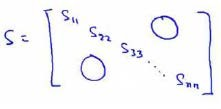 S = [ S11
S22
S33
⋱
Snn ]